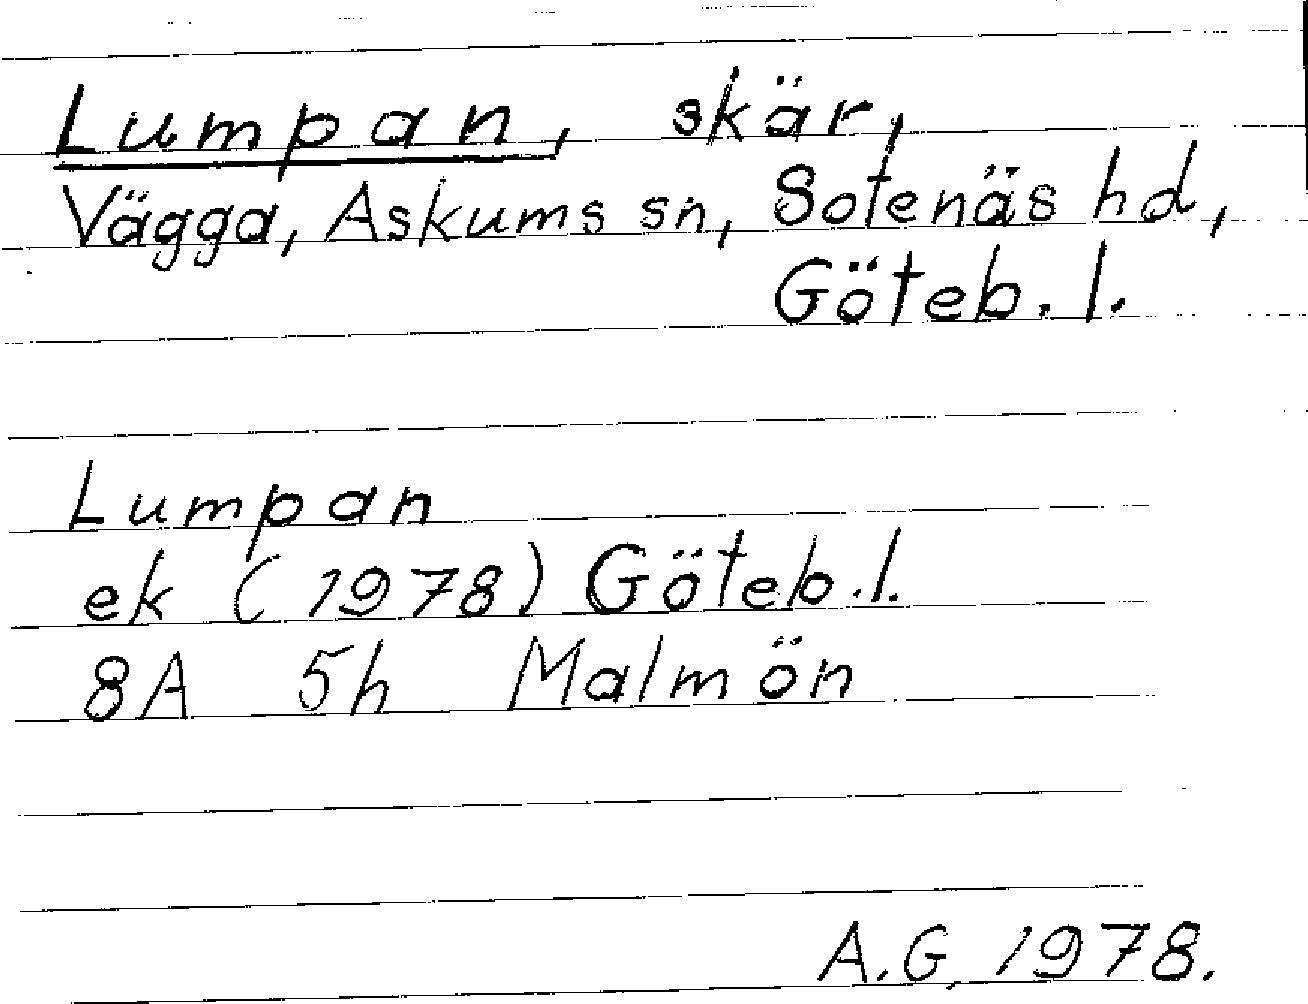 Lumpan, skär,
Vägga, Askums sn, Sotenäs hd,
Göteb. l.
Lumpan
ek (1978) Göteb. l.
8A 5h Malmön
A.G. 1978.